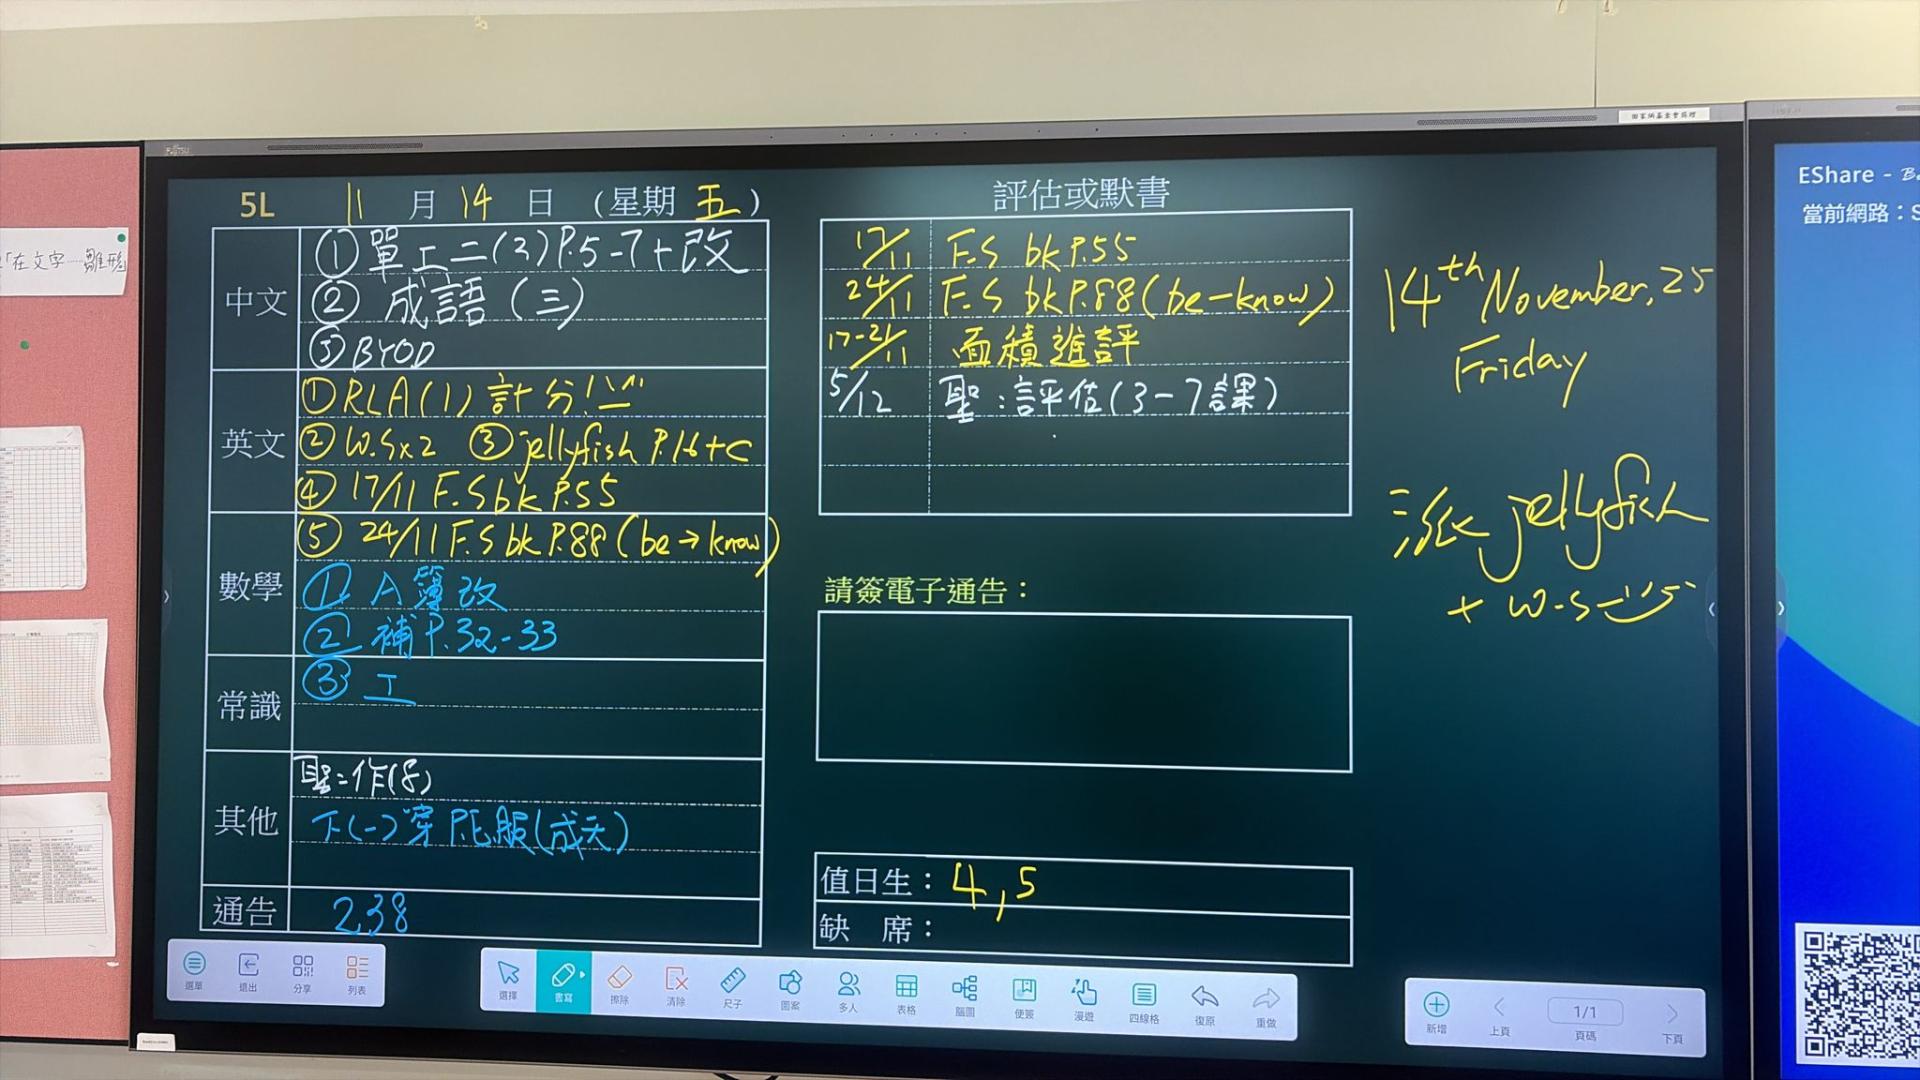 FUJITSU
田家炳基金會捐贈
「在文字……雛形」
5L 11 月 14 日 (星期 五)
中文
① 單工二(3) P.5-7+改
② 成語 (三)
③ BYOD
英文
① RLA(1) 計分!
② W.S x2 ③ jellyfish P.16+c
④ 17/11 F.S bk P.55
⑤ 24/11 F.S bk P.88 (be→know)
數學
① A簿改
② 補P.32-33
③ 工
常識
其他
聖:作(8)
下(一)穿P.E服(成天)
通告 238
評估或默書
17/11 F.S bk P.55
24/11 F.S bk P.88 (be-know)
17-21/11 面積進評
5/12 聖:評估(3-7課)
請簽電子通告:
值日生: 4,5
缺 席:
14th November, 25
Friday
派 jellyfish
+ W.S
EShare -
當前網路:S
選單 退出 分享 列表
選擇 書寫 擦除 清除 尺子 圖案 多人 表格 腦圖 便簽 漫遊 四線格 復原 重做
新增 上頁 1/1 頁碼 下頁